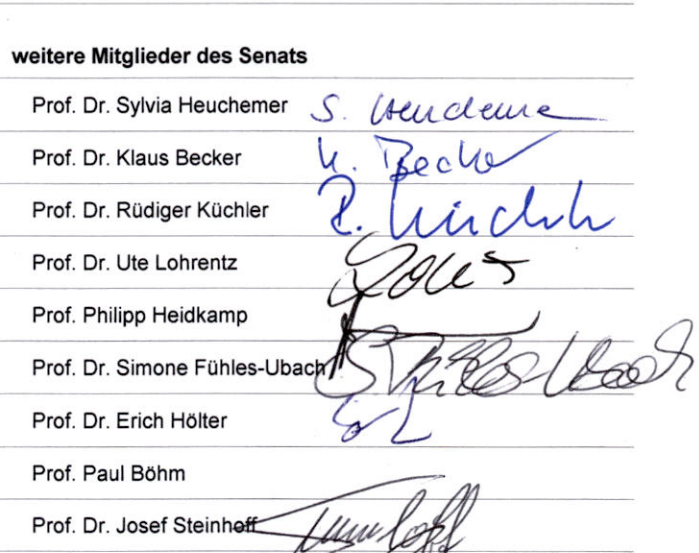 weitere Mitglieder des Senats
Prof. Dr. Sylvia Heuchemer S.
Prof. Dr. Klaus Becker K. Becker
Prof. Dr. Rüdiger Küchler R. Küchler
Prof. Dr. Ute Lohrentz
Prof. Philipp Heidkamp
Prof. Dr. Simone Fühles-Ubach S. Fühles-Ubach
Prof. Dr. Erich Hölter
Prof. Paul Böhm
Prof. Dr. Josef Steinhoff